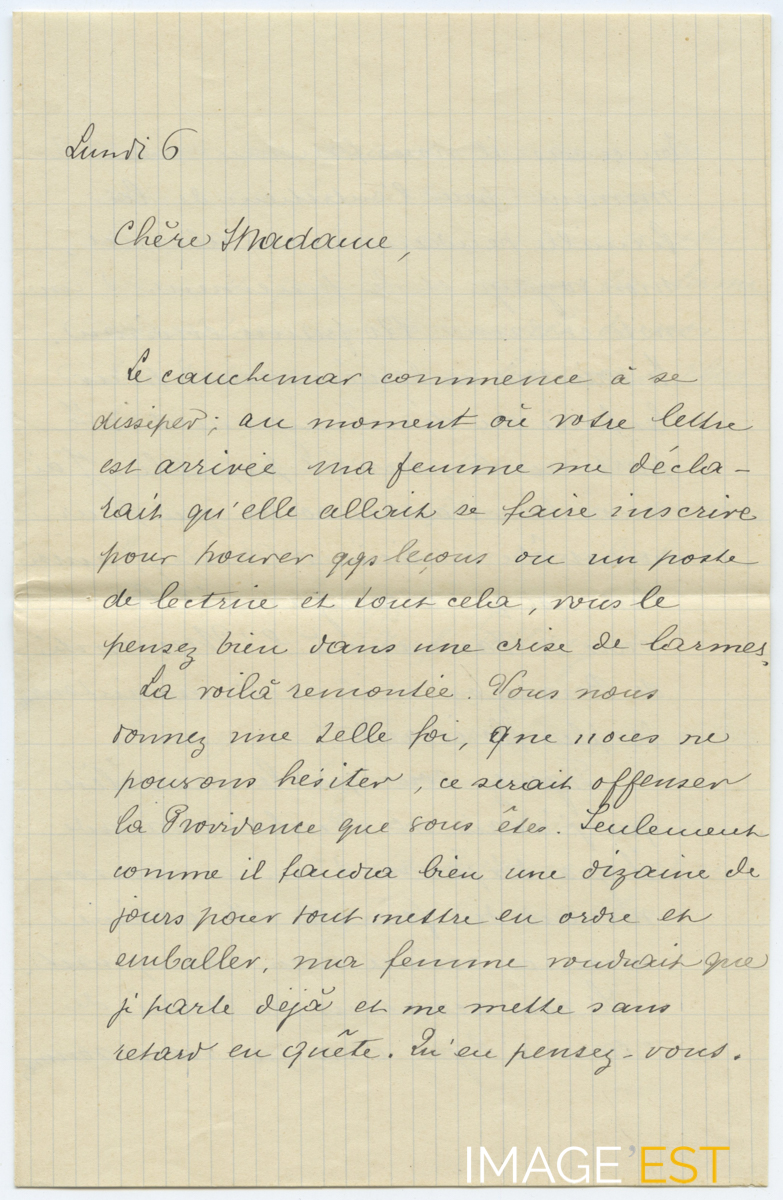 Lundi 6
Chère Madame,
Le cauchemar commence à se
dissiper; au moment où votre lettre
est arrivée ma femme me décla-
rait qu'elle allait se faire inscrire
pour trouver qqs leçons ou un poste
de lectrice et tout cela, vous le
pensez bien dans une crise de larmes.
La voilà remontée. Vous nous
donnez une telle foi, que nous ne
pouvons hésiter, ce serait offenser
la Providence que vous êtes. Seulement
comme il faudra bien une dizaine de
jours pour tout mettre en ordre et
emballer, ma femme voudrait que
je parte déjà et me mette sans
retard en quête. Qu'en pensez-vous.
IMAGE'EST